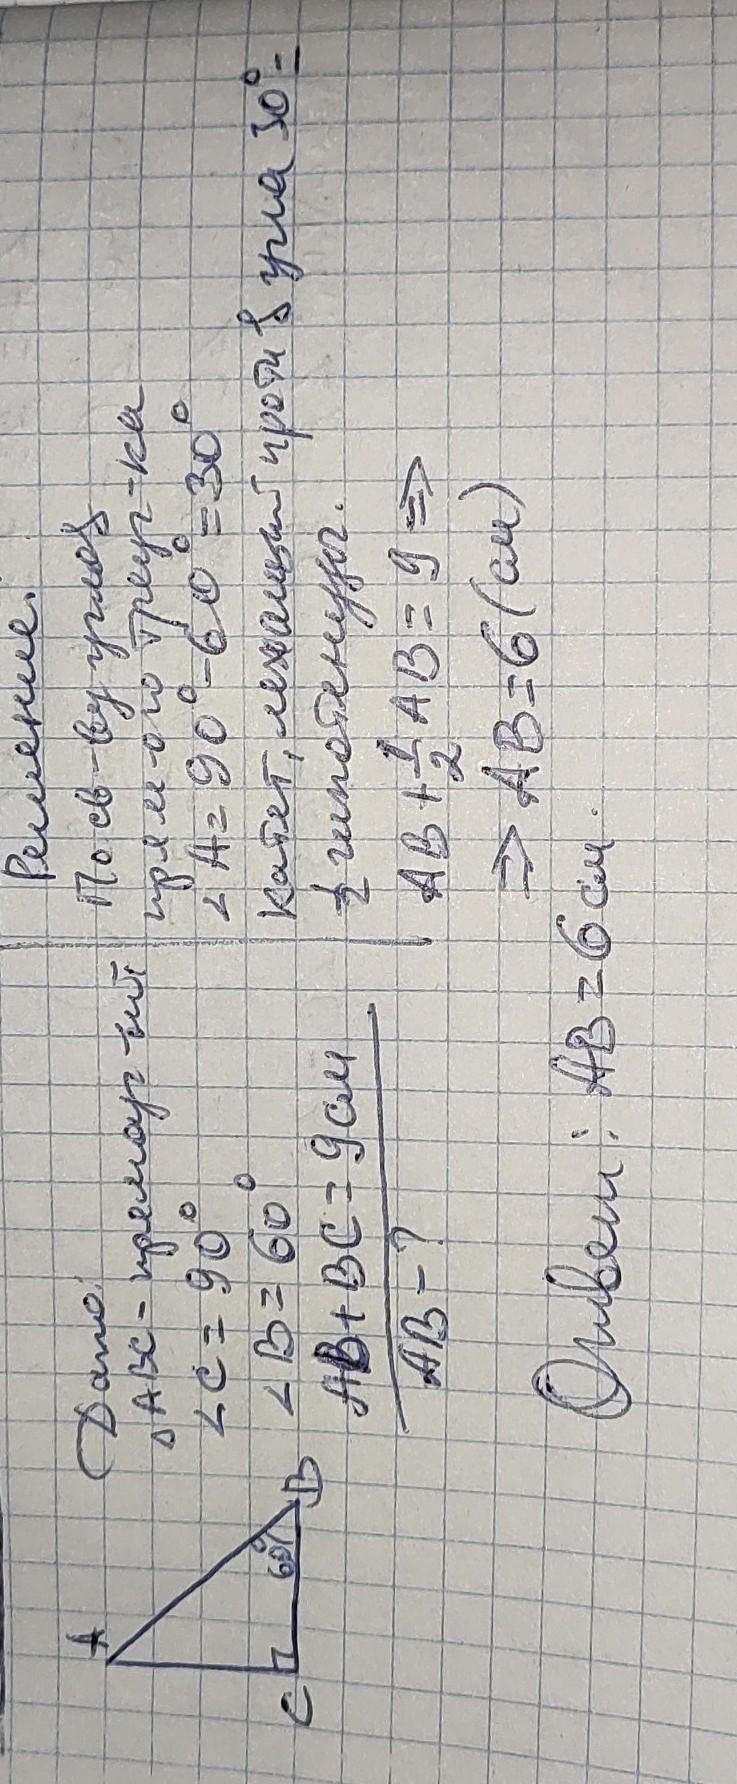 A
C
B
60°
Дано:
△ABC - прямоуг-ый
∠C = 90°
∠B = 60°
AB + BC = 9 см
AB - ?
Решение.
По св-ву углов
прям-ого треуг-ка
∠A = 90° - 60° = 30°
Катет, лежащий против угла 30° =
1/2 гипотенузы.
AB + 1/2 AB = 9 ⇒
⇒ AB = 6 (см)
Ответ: AB = 6 см.